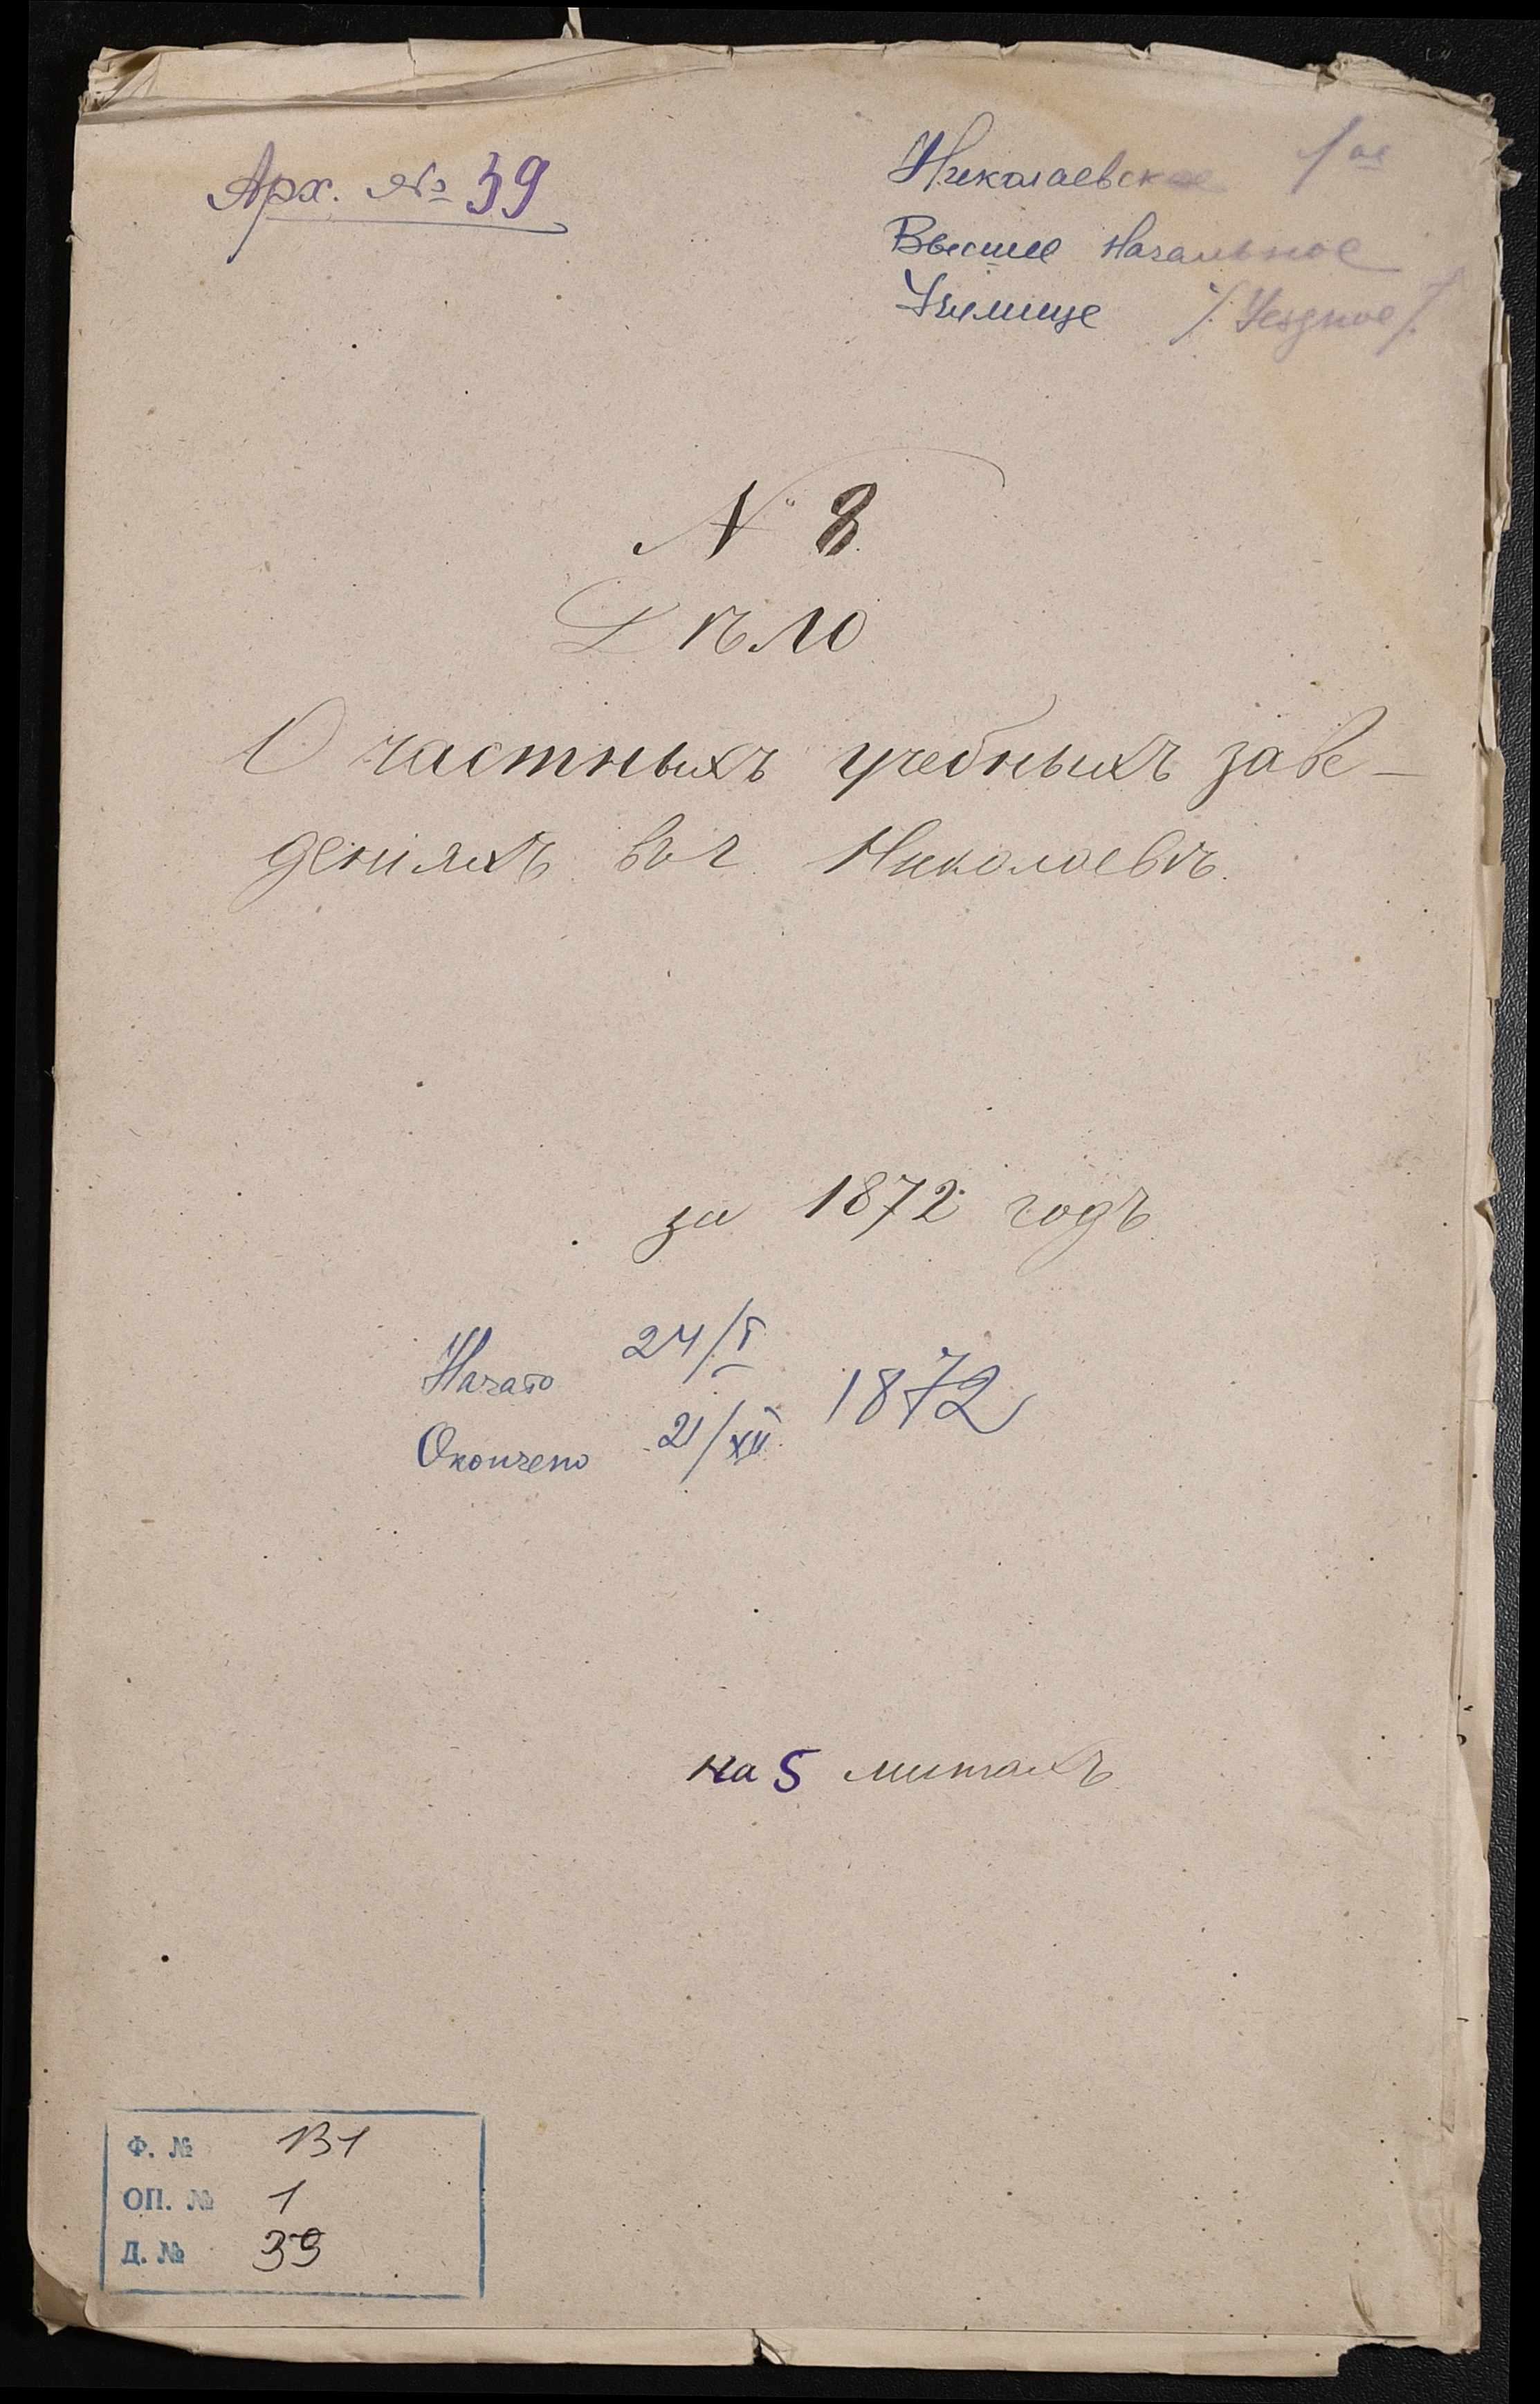 Арх. № 39
Николаевское 1ое
Высшее Начальное
Училище /Уездное/.
N 8
Дѣло
О частныхъ учебныхъ заве-
денияхъ въ г Николаевѣ.
за 1872 годъ
Начато 24/I 1872
Окончено 21/XII
на 5 листахъ
Ф. № 131
ОП. № 1
Д. № 39